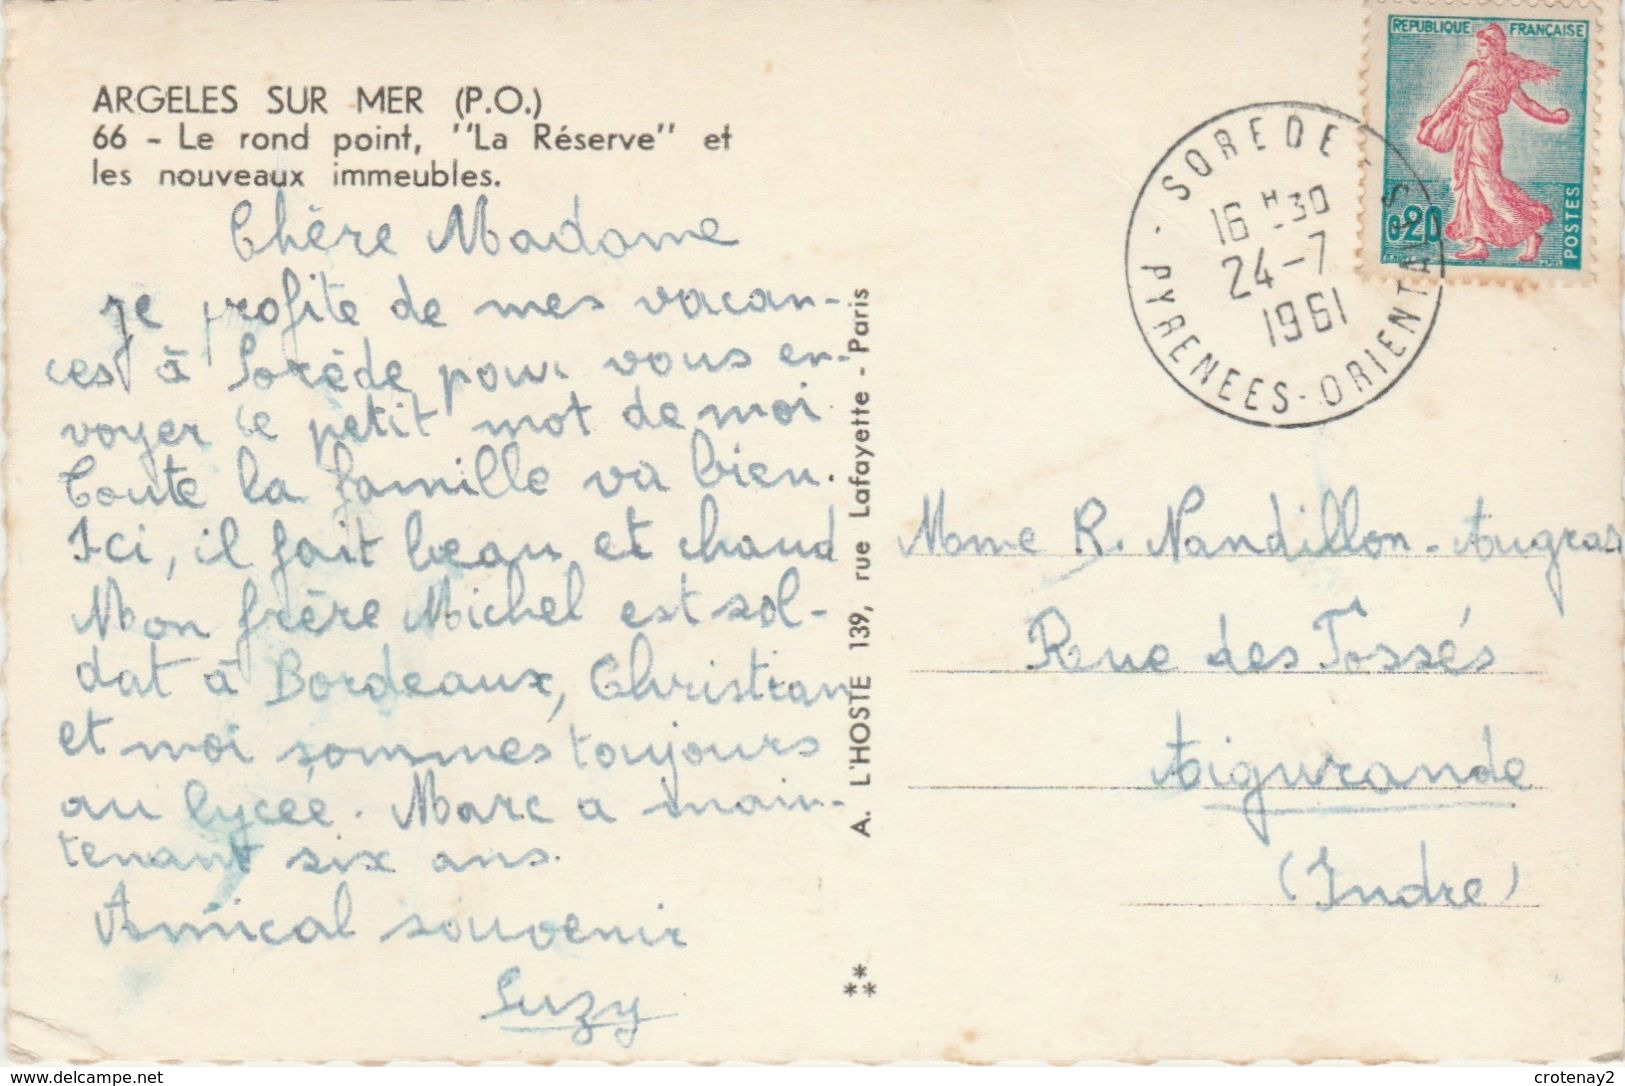 ARGELES SUR MER (P.O.)
66 - Le rond point, "La Réserve" et
les nouveaux immeubles.
Chère Madame
Je profite de mes vacan-
ces à Sorède pour vous en-
voyer ce petit mot de moi
Toute la famille va bien.
Ici, il fait beau et chaud
Mon frère Michel est sol-
dat à Bordeaux, Christian
et moi sommes toujours
au lycée. Marc a main-
tenant six ans.
Amical souvenir
Suzy
A. L'HOSTE 139, rue Lafayette - Paris
REPUBLIQUE FRANÇAISE
0,20
POSTES
SOREDE
16 H 30
24-7
1961
PYRENEES-ORIENTALES
Mme R. Nandillon-Augras
Rue des Fossés
Aigurande
(Indre)
delcampe.net
crotenay2